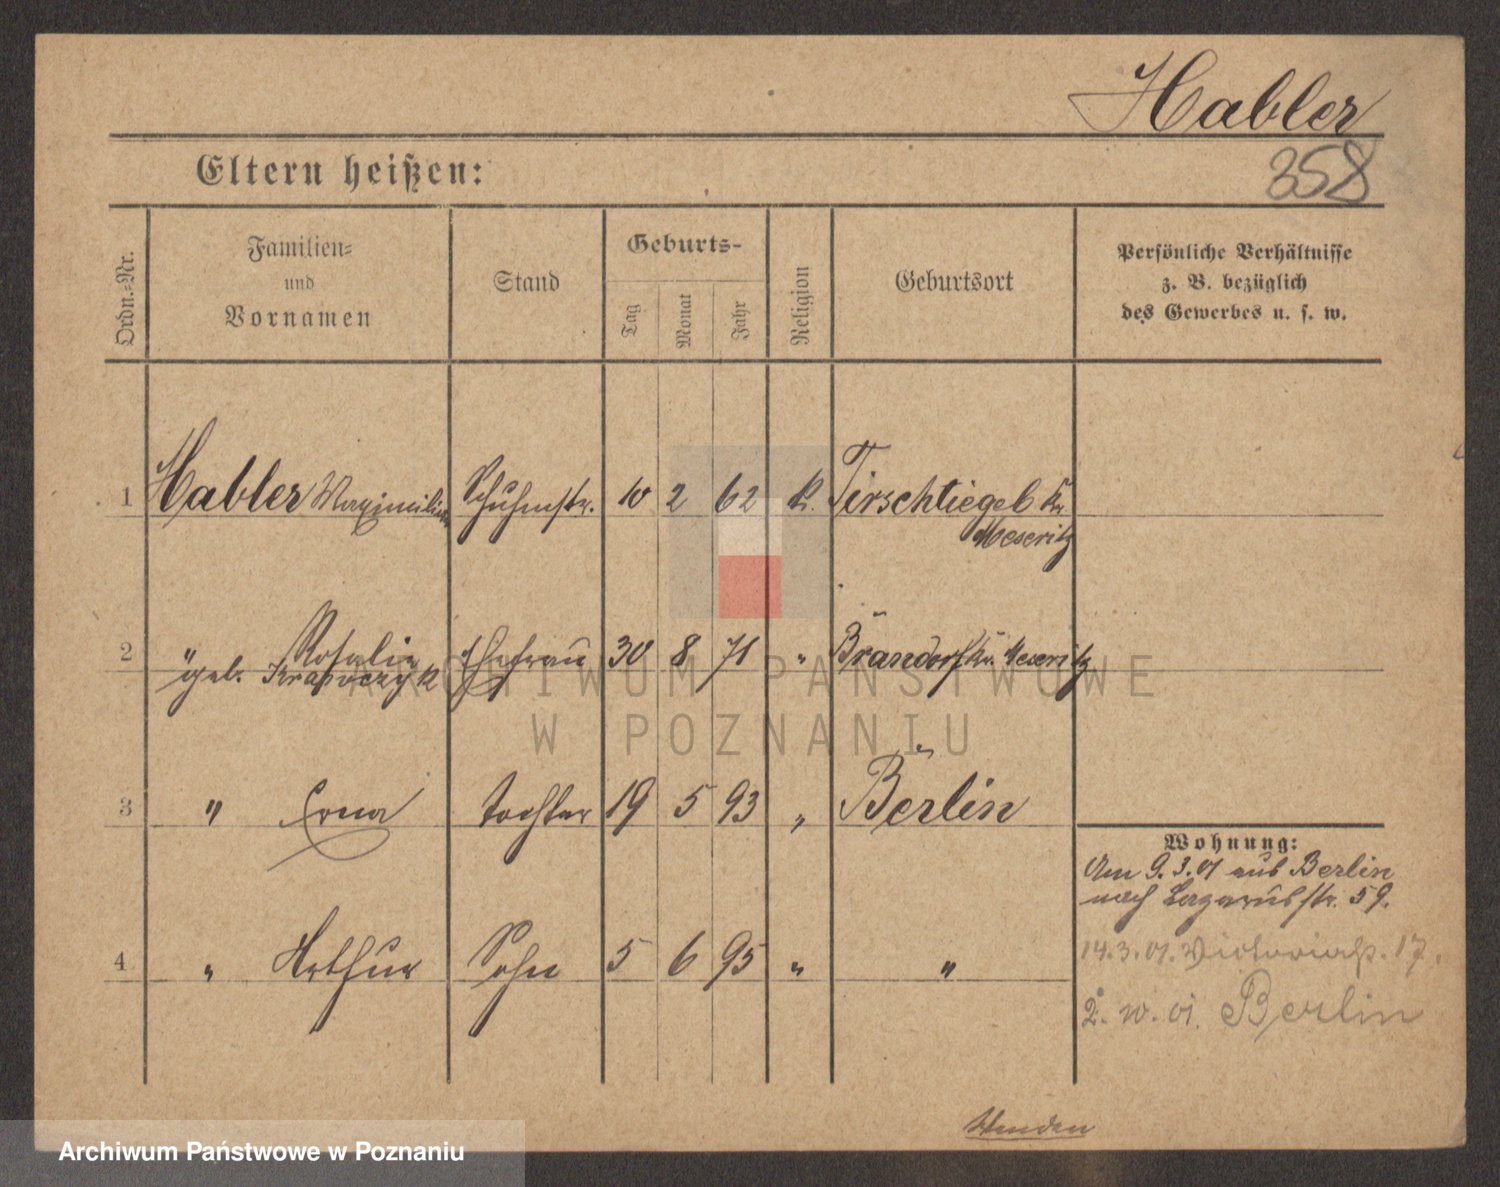 Habler
358
Eltern heißen:
Ordn.-Nr.
Familien-
und
Vornamen
Stand
Geburts-
Tag
Monat
Jahr
Religion
Geburtsort
Persönliche Verhältnisse
z. B. bezüglich
des Gewerbes u. s. w.
1 Habler Maximilian Schuhmstr. 10 2 62 k. Tirschtiegel Kr.
Meseritz
2 " Rosalie Ehefrau 30 8 71 " Brandorf Kr. Meseritz
geb. Krawczyk
3 " Erna Tochter 19 5 93 " Berlin
4 " Arthur Sohn 5 6 95 " "
Wohnung:
Am 9.3.01 aus Berlin
nach Lazarusstr. 59.
14.3.01. Victoriastr. 17.
2. 10. 01. Berlin
Wenden
ARCHIWUM PAŃSTWOWE
W POZNANIU
Archiwum Państwowe w Poznaniu